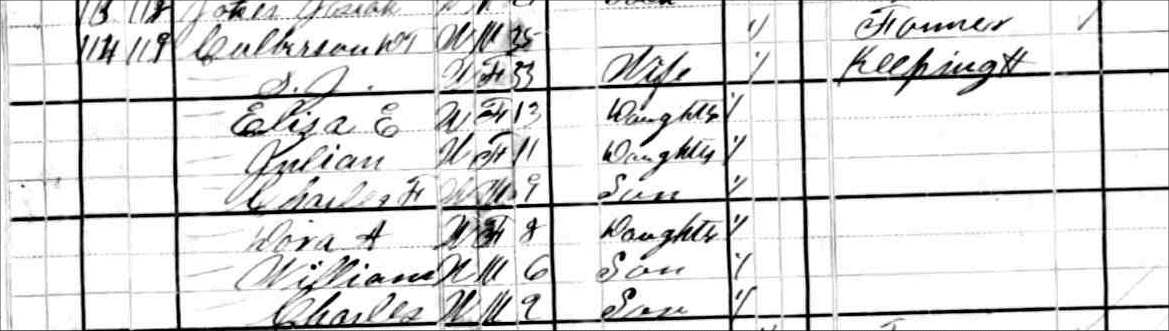 113 118 Jones Josiah W M
114 119 Culberson W M 35 Farmer
— S. J. W F 33 Wife Keeping H
— Eliza E W F 13 Daughter
— Julian W F 11 Daughter
— Charles F W M 9 Son
— Dora A W F 8 Daughter
— William W M 6 Son
— Charles W M 2 Son